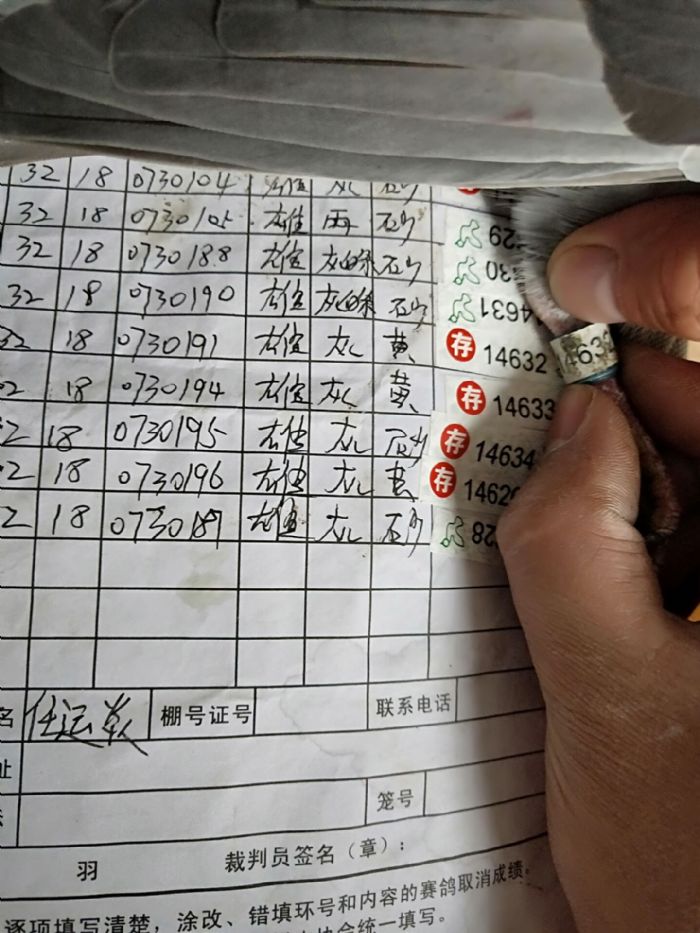 32 18 0730104 雄 灰 砂
32 18 0730105 雄 雨 砂 629
32 18 0730188 雄 砂 630
32 18 0730190 雄 砂 14631
32 18 0730191 雄 灰 黄 存 14632 14632
2 18 0730194 雄 灰 黄 存 14633
2 18 0730195 雄 灰 砂 存 14634
2 18 0730196 雄 灰 黄 存 1462
2 18 0730187 雄 灰 砂 28
名 任运 棚号证号 联系电话
址
笼号
羽 裁判员签名（章）：
逐项填写清楚，涂改、错填环号和内容的赛鸽取消成绩。
协会统一填写。